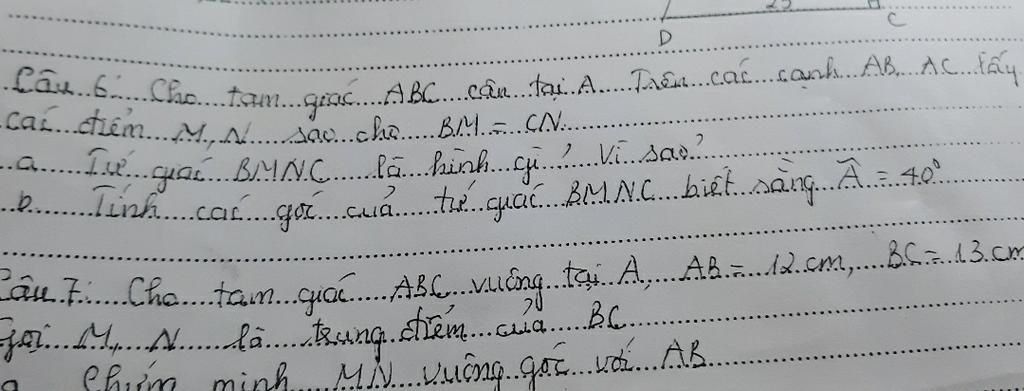 25
D C
Câu 6: Cho tam giác ABC cân tại A. Trên các cạnh AB, AC lấy
các điểm M, N sao cho BM = CN.
a Tứ giác BMNC là hình gì? Vì sao?
b. Tính các góc của tứ giác BMNC biết rằng Â = 40°
Câu 7: Cho tam giác ABC vuông tại A, AB = 12 cm, BC = 13 cm
Gọi M, N là trung điểm của BC
a Chứng minh MN vuông góc với AB